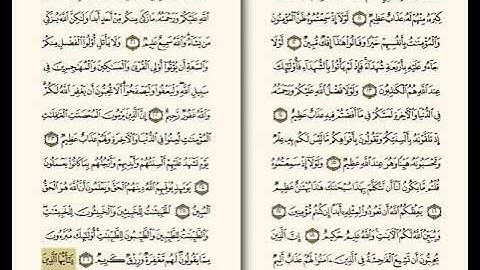 كِبْرَهُۥ مِنْهُمْ لَهُۥ عَذَابٌ عَظِيمٌ ١١ لَّوْلَآ إِذْ سَمِعْتُمُوهُ ظَنَّ ٱلْمُؤْمِنُونَ
وَٱلْمُؤْمِنَٰتُ بِأَنفُسِهِمْ خَيْرًا وَقَالُوا۟ هَٰذَآ إِفْكٌ مُّبِينٌ ١٢ لَّوْلَا
جَآءُو عَلَيْهِ بِأَرْبَعَةِ شُهَدَآءَ فَإِذْ لَمْ يَأْتُوا۟ بِٱلشُّهَدَآءِ فَأُو۟لَٰٓئِكَ
عِندَ ٱللَّهِ هُمُ ٱلْكَٰذِبُونَ ١٣ وَلَوْلَا فَضْلُ ٱللَّهِ عَلَيْكُمْ وَرَحْمَتُهُۥ
فِى ٱلدُّنْيَا وَٱلْءَاخِرَةِ لَمَسَّكُمْ فِى مَآ أَفَضْتُمْ فِيهِ عَذَابٌ عَظِيمٌ ١٤
إِذْ تَلَقَّوْنَهُۥ بِأَلْسِنَتِكُمْ وَتَقُولُونَ بِأَفْوَاهِكُم مَّا لَيْسَ لَكُم بِهِۦ عِلْمٌ
وَتَحْسَبُونَهُۥ هَيِّنًا وَهُوَ عِندَ ٱللَّهِ عَظِيمٌ ١٥ وَلَوْلَآ إِذْ سَمِعْتُمُوهُ
قُلْتُم مَّا يَكُونُ لَنَآ أَن نَّتَكَلَّمَ بِهَٰذَا سُبْحَٰنَكَ هَٰذَا بُهْتَٰنٌ عَظِيمٌ
١٦ يَعِظُكُمُ ٱللَّهُ أَن تَعُودُوا۟ لِمِثْلِهِۦٓ أَبَدًا إِن كُنتُم مُّؤْمِنِينَ
١٧ وَيُبَيِّنُ ٱللَّهُ لَكُمُ ٱلْءَايَٰتِ وَٱللَّهُ عَلِيمٌ حَكِيمٌ ١٨ إِنَّ ٱلَّذِينَ
يُحِبُّونَ أَن تَشِيعَ ٱلْفَٰحِشَةُ فِى ٱلَّذِينَ ءَامَنُوا۟ لَهُمْ عَذَابٌ أَلِيمٌ
ٱللَّهِ عَلَيْكُمْ وَرَحْمَتُهُۥ مَا زَكَىٰ مِنكُم مِّنْ أَحَدٍ أَبَدًا وَلَٰكِنَّ ٱللَّهَ يُزَكِّى
مَن يَشَآءُ وَٱللَّهُ سَمِيعٌ عَلِيمٌ ٢١ وَلَا يَأْتَلِ أُو۟لُوا۟ ٱلْفَضْلِ مِنكُمْ
وَٱلسَّعَةِ أَن يُؤْتُوٓا۟ أُو۟لِى ٱلْقُرْبَىٰ وَٱلْمَسَٰكِينَ وَٱلْمُهَٰجِرِينَ فِى
سَبِيلِ ٱللَّهِ وَلْيَعْفُوا۟ وَلْيَصْفَحُوٓا۟ أَلَا تُحِبُّونَ أَن يَغْفِرَ ٱللَّهُ لَكُمْ
وَٱللَّهُ غَفُورٌ رَّحِيمٌ ٢٢ إِنَّ ٱلَّذِينَ يَرْمُونَ ٱلْمُحْصَنَٰتِ ٱلْغَٰفِلَٰتِ
ٱلْمُؤْمِنَٰتِ لُعِنُوا۟ فِى ٱلدُّنْيَا وَٱلْءَاخِرَةِ وَلَهُمْ عَذَابٌ عَظِيمٌ ٢٣
يَوْمَ تَشْهَدُ عَلَيْهِمْ أَلْسِنَتُهُمْ وَأَيْدِيهِمْ وَأَرْجُلُهُم بِمَا كَانُوا۟ يَعْمَلُونَ
٢٤ يَوْمَئِذٍ يُوَفِّيهِمُ ٱللَّهُ دِينَهُمُ ٱلْحَقَّ وَيَعْلَمُونَ أَنَّ ٱللَّهَ هُوَ ٱلْحَقُّ
ٱلْمُبِينُ ٢٥ ٱلْخَبِيثَٰتُ لِلْخَبِيثِينَ وَٱلْخَبِيثُونَ لِلْخَبِيثَٰتِ
وَٱلطَّيِّبَٰتُ لِلطَّيِّبِينَ وَٱلطَّيِّبُونَ لِلطَّيِّبَٰتِ أُو۟لَٰٓئِكَ مُبَرَّءُونَ
مِمَّا يَقُولُونَ لَهُم مَّغْفِرَةٌ وَرِزْقٌ كَرِيمٌ ٢٦ يَٰٓأَيُّهَا ٱلَّذِينَ